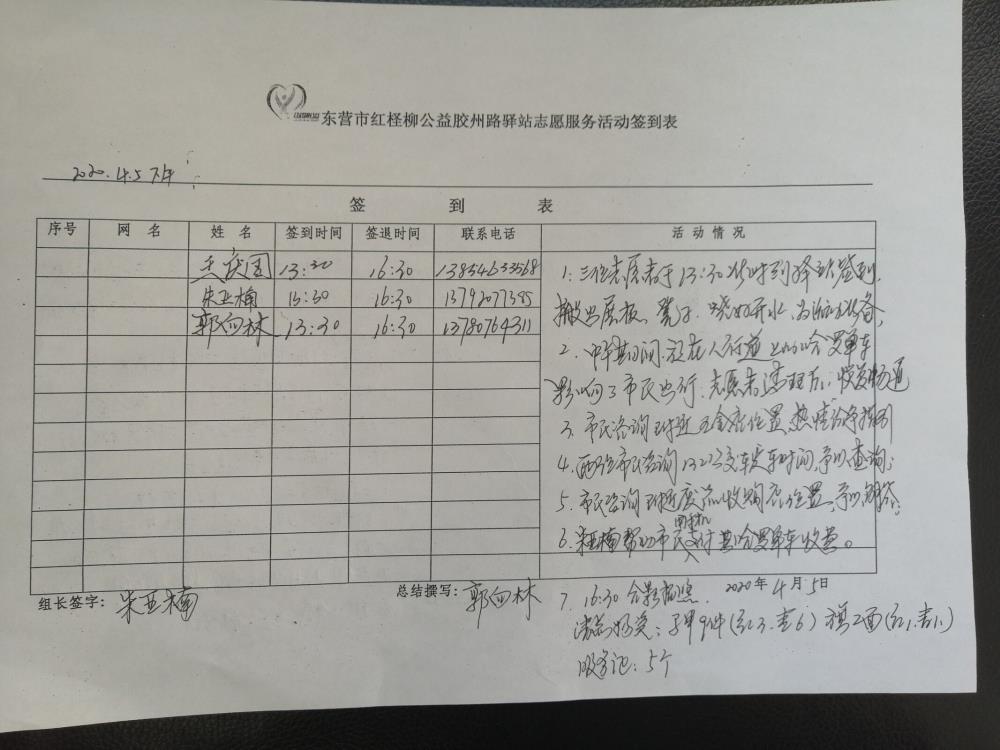 东营市红柽柳公益胶州路驿站志愿服务活动签到表
2020.4.5 下午
签 到 表
序号 网 名 姓 名 签到时间 签退时间 联系电话 活 动 情 况
王庆国 13:30 16:30 13854633568
朱亚楠 13:30 16:30
郭向林 13:30 16:30 13780764311
1.三位志愿者于13:30准时到驿站签到,
搬出展板、凳子、烧好开水,
2.
影响了市民出行,志愿者清理后,恢复畅通
3.市民咨询附近五金店位置,热情给予指引
4.两位市民咨询 公交车发车时间,予以查询;
5.市民咨询附近废品收购店位置,予以解答;
6.朱亚楠帮助市民用手机支付其哈罗单车收费。
组长签字: 朱亚楠 总结撰写: 郭向林 2020年4月5日
7. 16:30合影
马甲9件(红3.青6) 旗2面(红1.青1.)
服务记: 5个